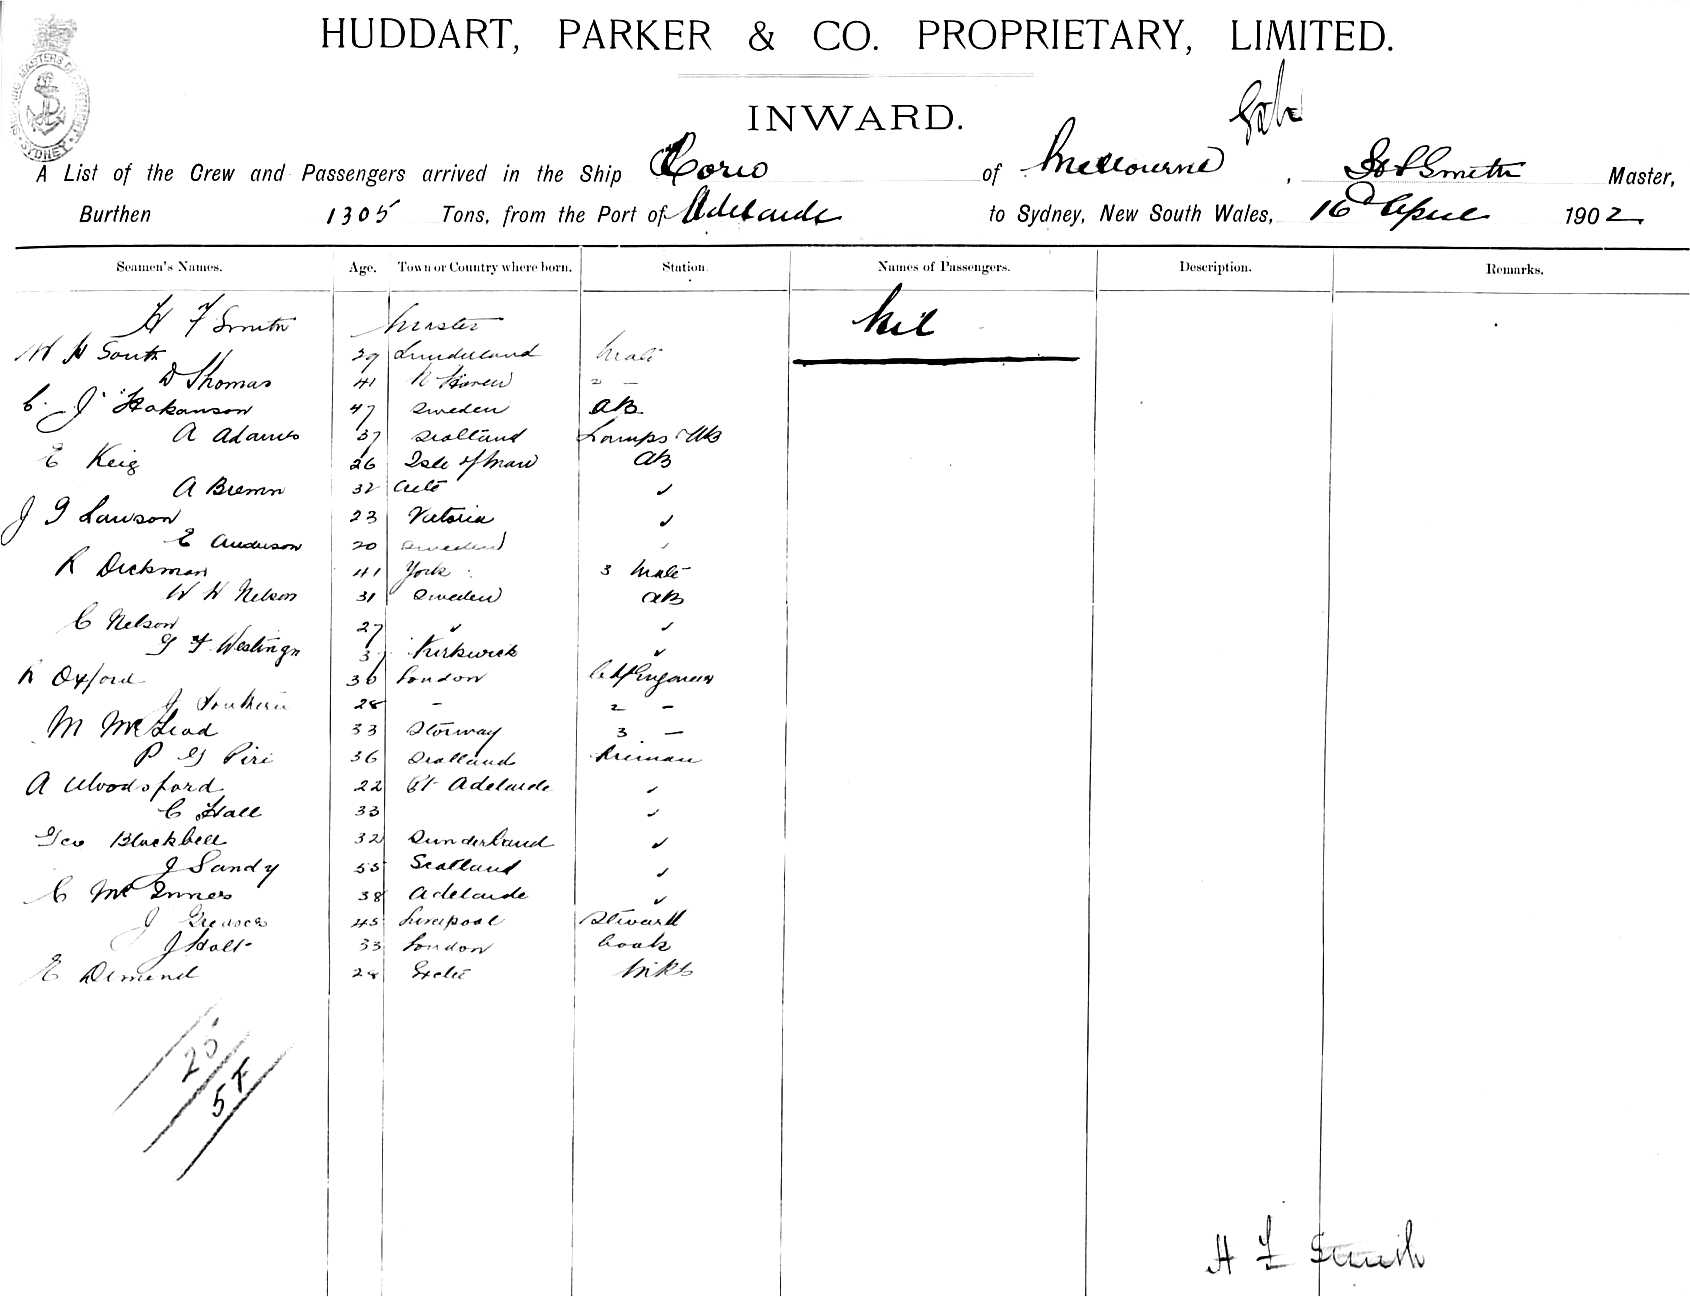 HUDDART, PARKER & CO. PROPRIETARY, LIMITED.
INWARD.
A List of the Crew and Passengers arrived in the Ship Corio of Melbourne, H F Smith Master,
Burthen 1305 Tons, from the Port of Adelaide to Sydney, New South Wales, 16 April 1902
Seamen's Names. Age. Town or Country where born. Station. Names of Passengers. Description. Remarks.
H F Smith Master Nil
W H South 29 Sunderland Mate
D Thomas 41 2 -
C. J Hakanson 47 Sweden AB
A Adams 37 Scotland Lamps AB
E Keig 26 Isle of Man AB
A Bremn 32 ✓
J G Lawson 23 Victoria ✓
E Anderson 20 Sweden ✓
R Dickman 41 York 3 Mate
W H Nelson 31 Sweden AB
C Nelson 27 ✓ ✓
G F Westinge 37 Kirkwick ✓
R Oxford 36 London Ch Engineer
J Southern 28 - 2 -
M McLeod 33 Storway 3 -
P G Piri 36 Scotland Fireman
A Woodsford 22 Pt Adelaide ✓
C Hall 33 ✓
Geo Blackbell 32 Sunderland ✓
J Sandy 55 Scotland ✓
C McInnes 38 Adelaide ✓
J 45 Liverpool Steward
J Holt 33 London Cook
E Dimend 28 Exeter
25
5 F
H F Smith